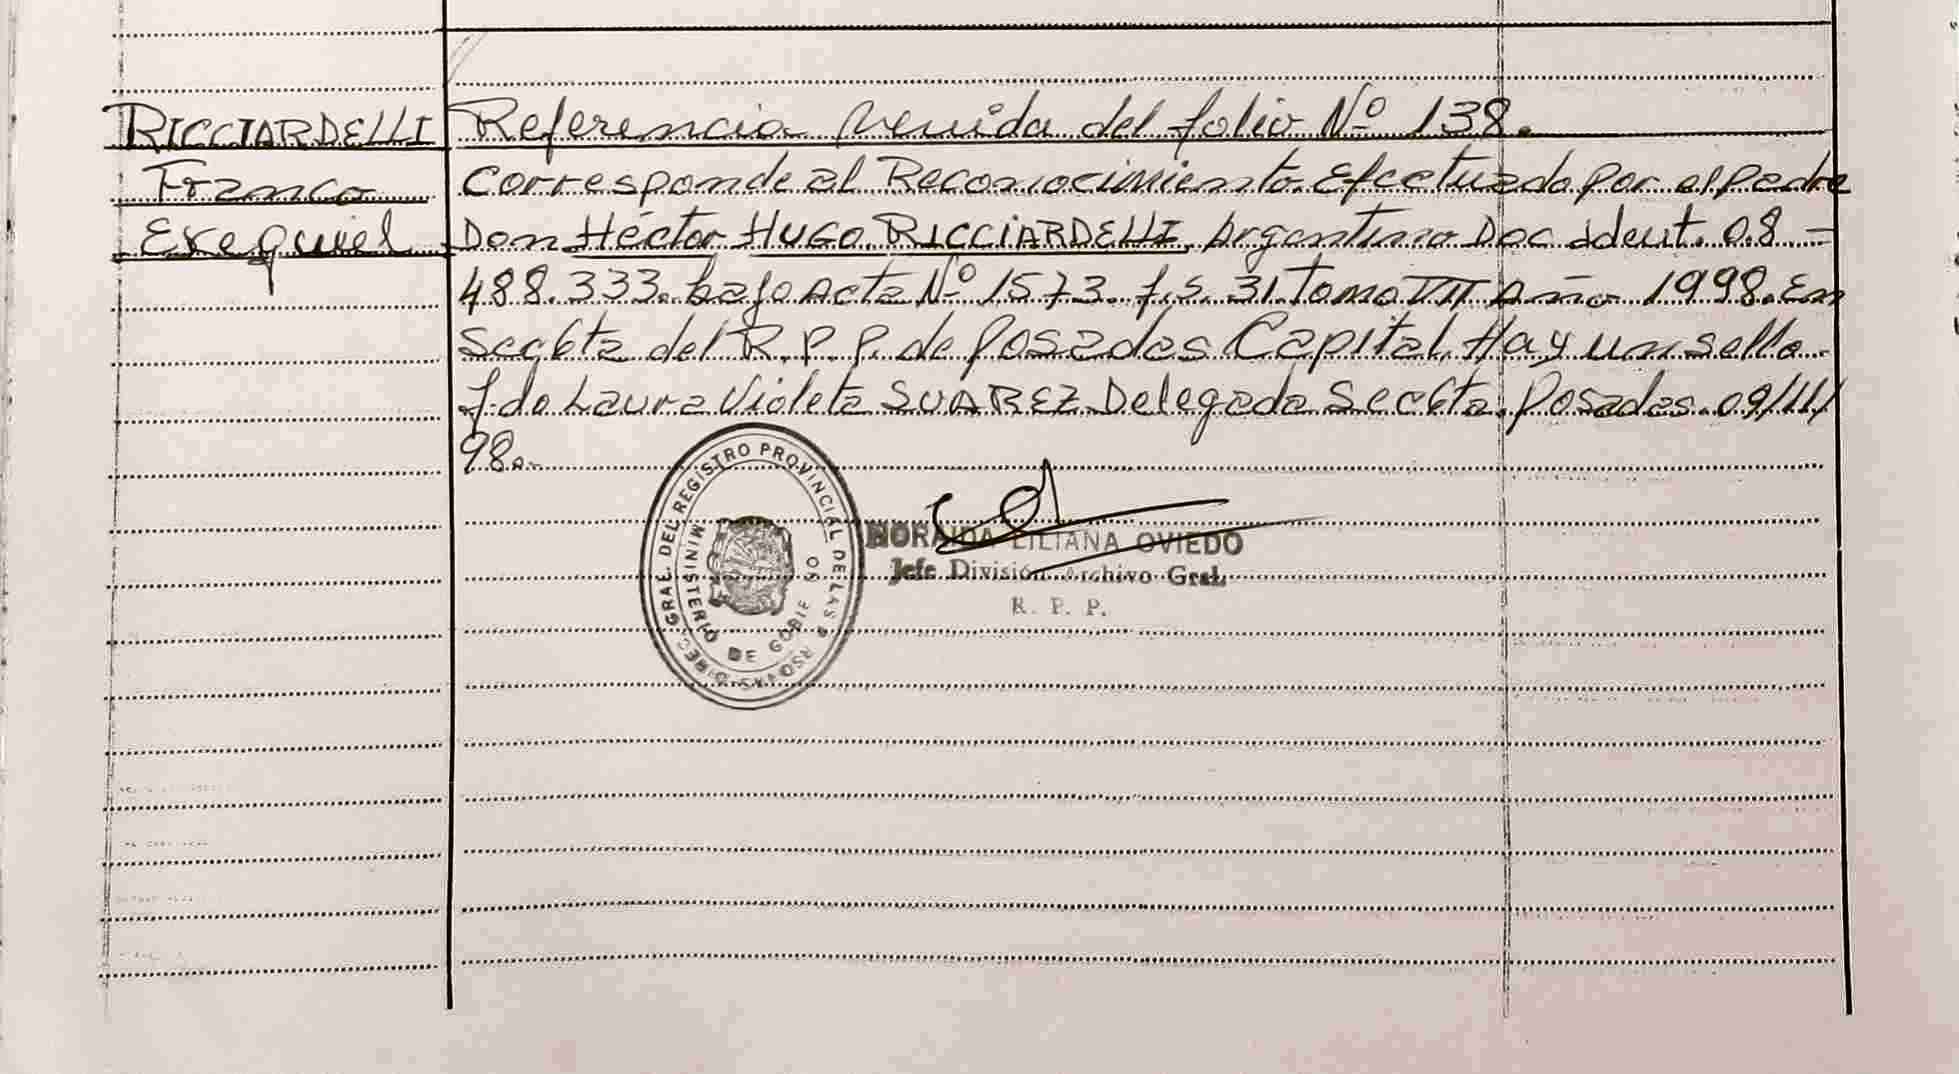 RICCIARDELLI
Franco
Exequiel
Referencia venida del folio Nº 138.
Corresponde al Reconocimiento Efectuado por el padre
Don Héctor HUGO RICCIARDELLI, Argentino Doc ident. 08-
488.333. bajo Acta Nº 1573. f.s. 31. Tomo VII Año 1998. En
Secc 6ta del R.P.P. de Posadas Capital. Hay un sello
f.do Laura Violeta SUAREZ Delegada Secc 6ta. Posadas. 09/11/
98.-
DIREC. GRAL. DEL REGISTRO PROVINCIAL DE LAS PERSONAS
MINISTERIO DE GOBIERNO
LILIANA OVIEDO
Jefe División Archivo Gral.
R. P. P.